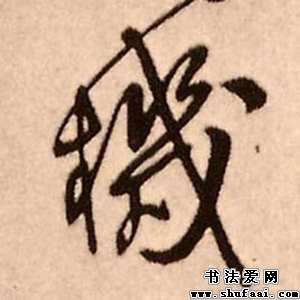 機
书法爱网
www.shufaai.com